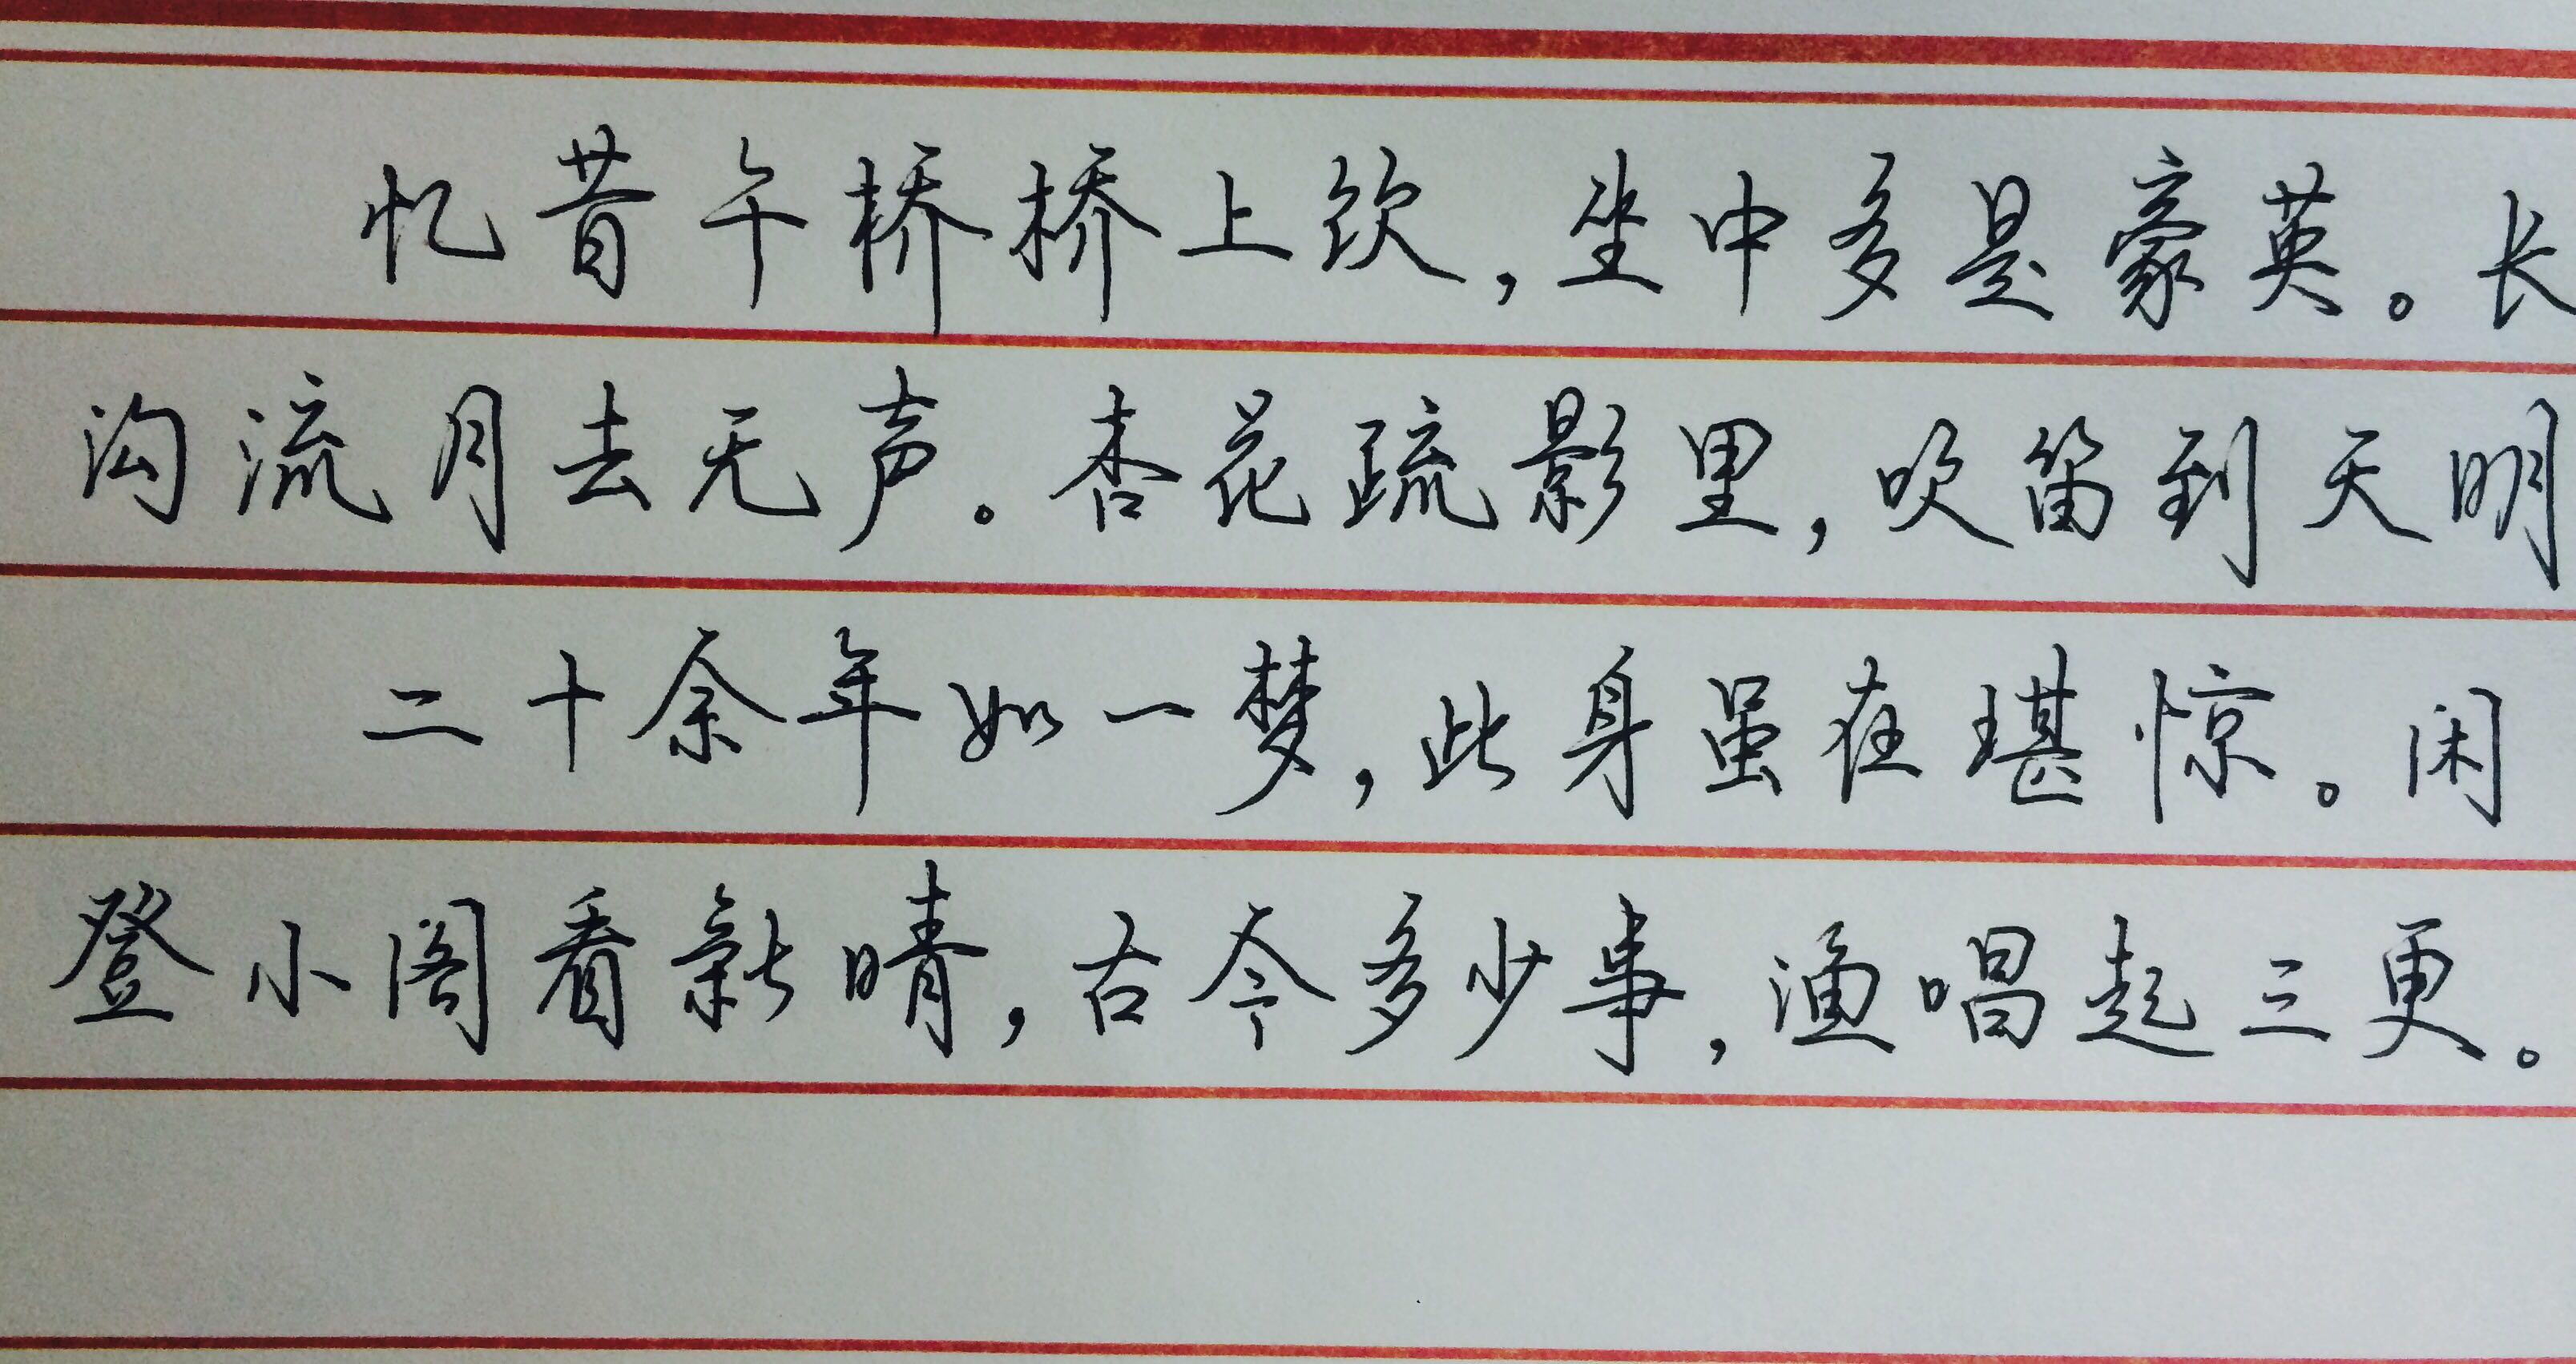 忆昔午桥桥上饮，坐中多是豪英。长
沟流月去无声。杏花疏影里，吹笛到天明
二十余年如一梦，此身虽在堪惊。闲
登小阁看新晴，古今多少事，渔唱起三更。